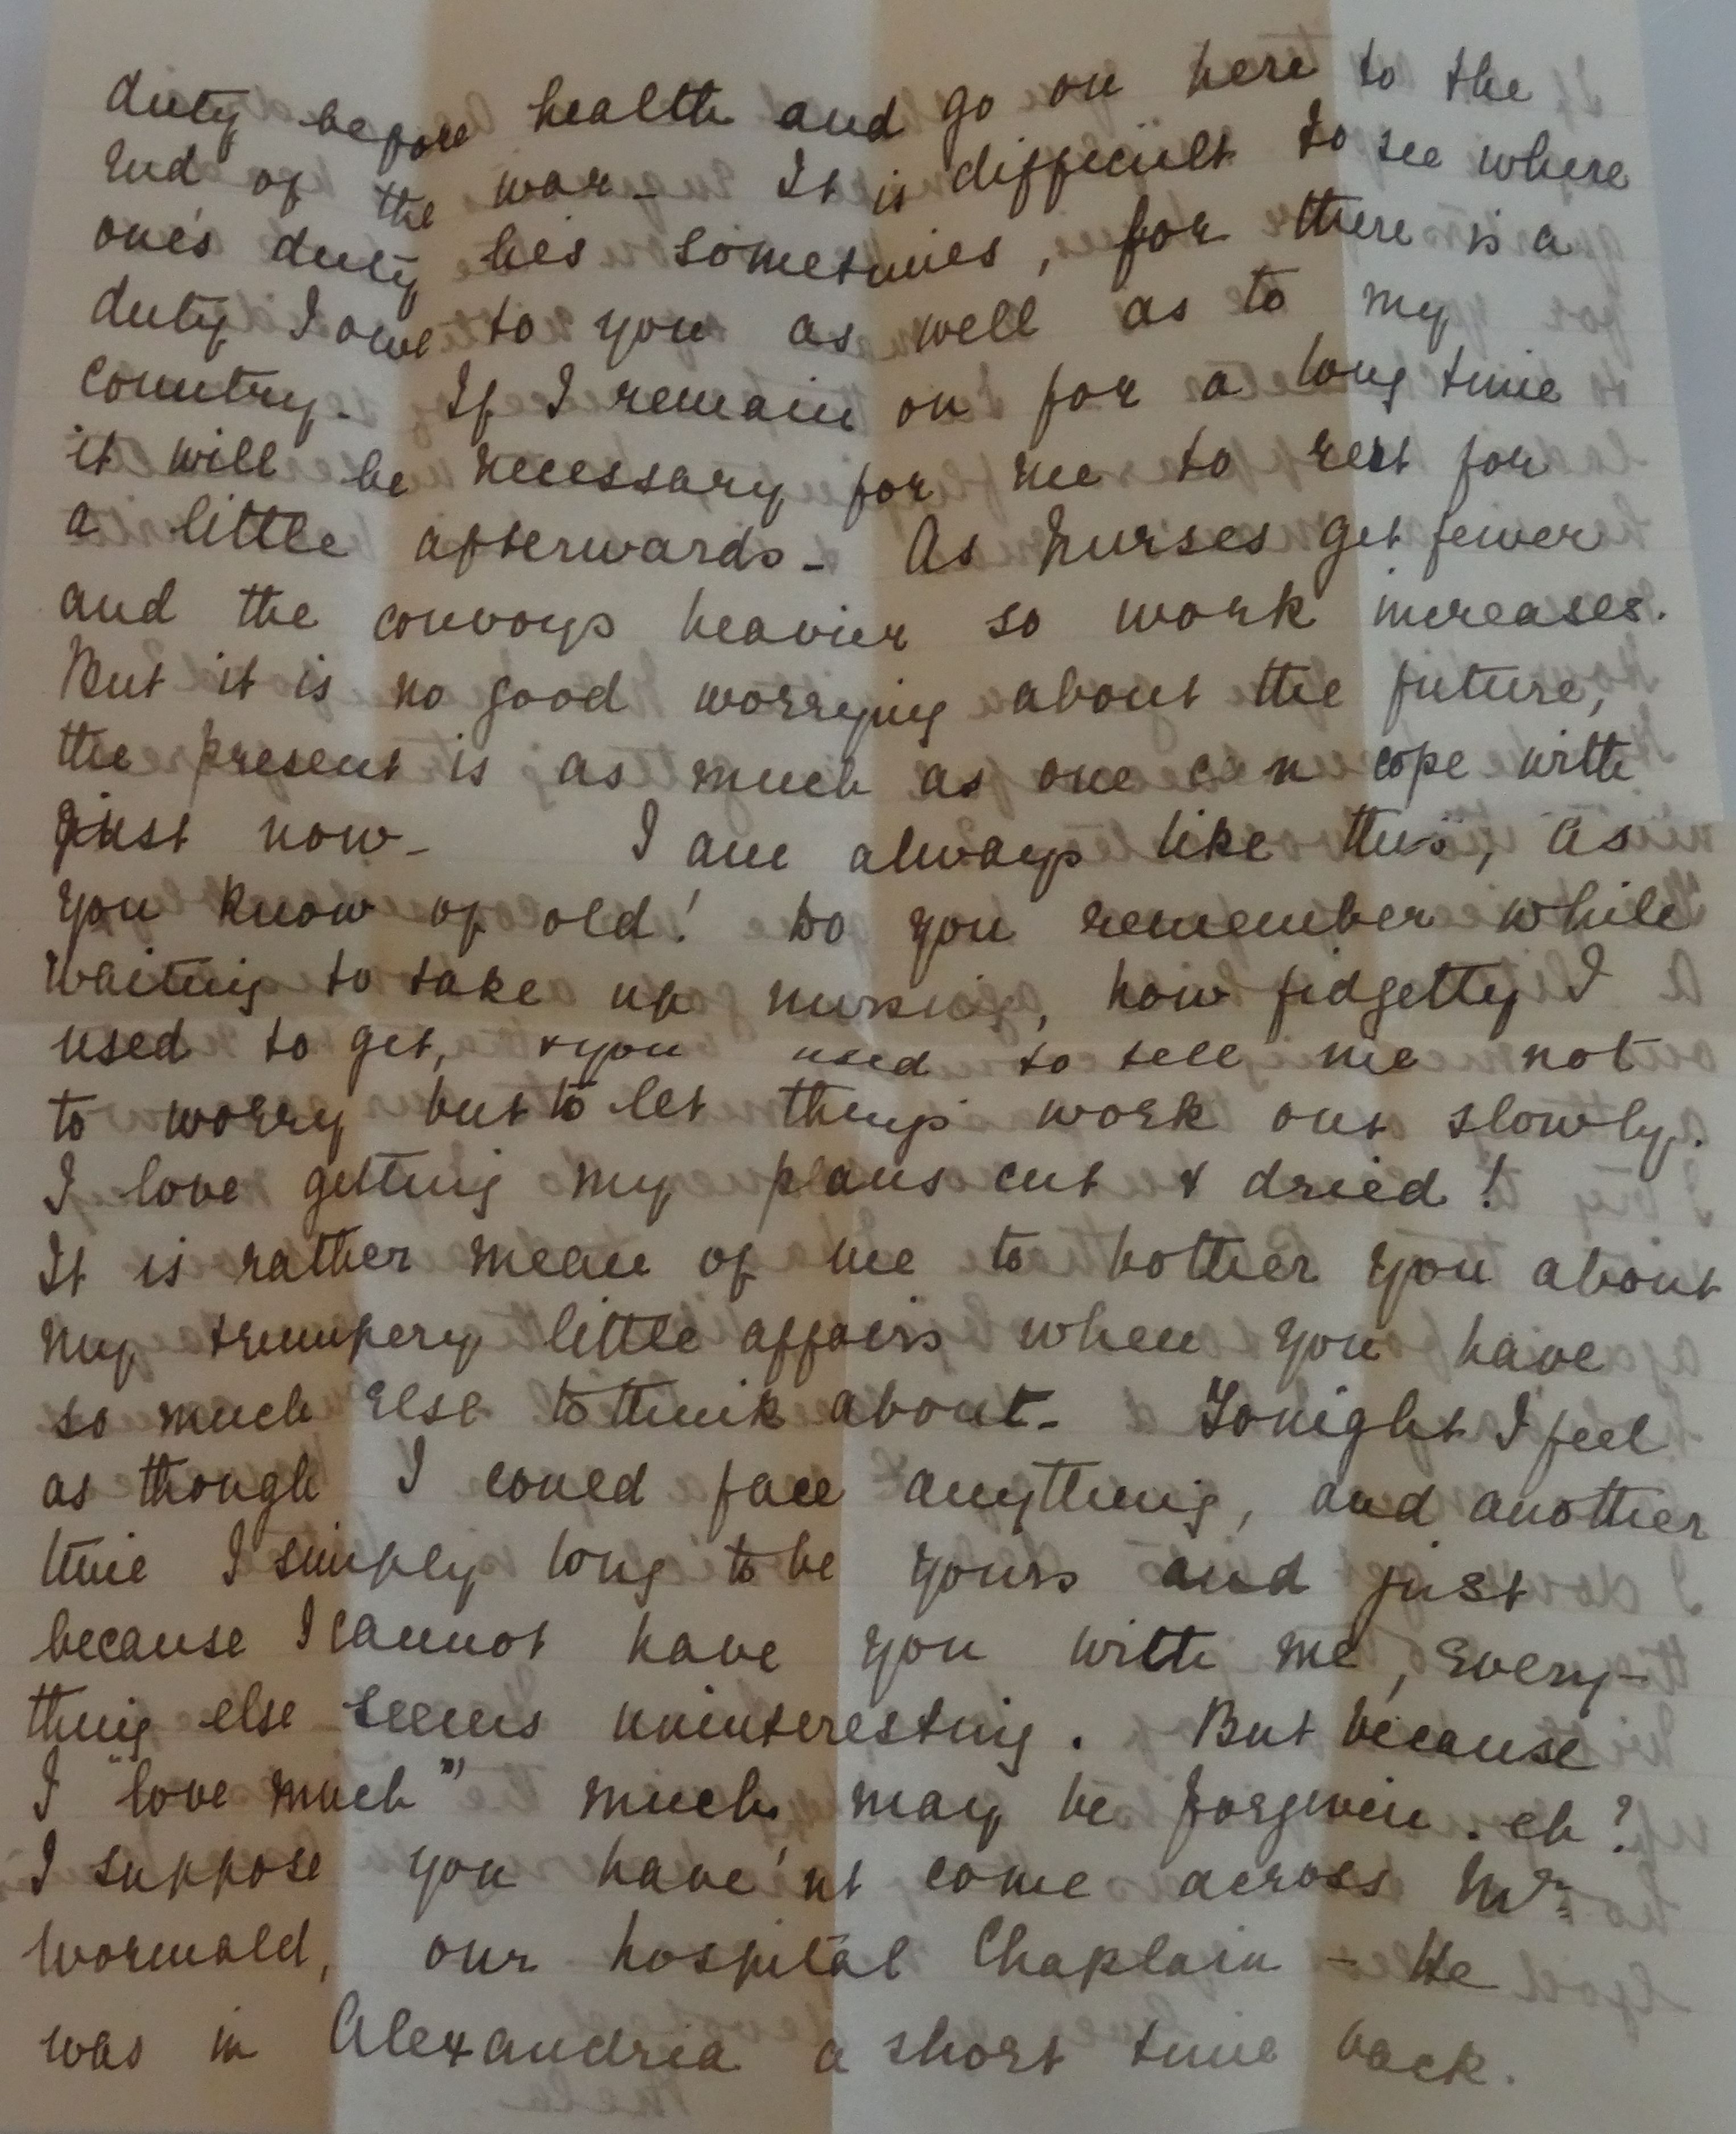 duty before health and go on here to the
End of the war - It is difficult to see where
one's duty lies sometimes, for there is a
duty I owe to you as well as to my
Country. If I remain on for a long time
it will be necessary for me to rest for
a little afterwards - As Nurses get fewer
and the convoys heavier so work increases.
But it is no good worrying about the future,
the present is as much as one c n cope with
just now - I am always like this, as
you know of old! Do you remember while
waiting to take up nursing, how fidgetty I
used to get, & you used to tell me not
to worry but to let things work out slowly.
I love getting my plans cut & dried!
It is rather mean of me to bother you about
my trumpery little affairs when you have
so much else to think about - Tonight I feel
as though I could face anything, and another
time I simply long to be yours and just
because I cannot have you with me, Every-
thing else seems uninteresting. But because
I "love much" much may be forgiven. eh?
I suppose you have'nt come across Mr.
Wormald, our hospital Chaplain - He
was in Alexandria a short time back.